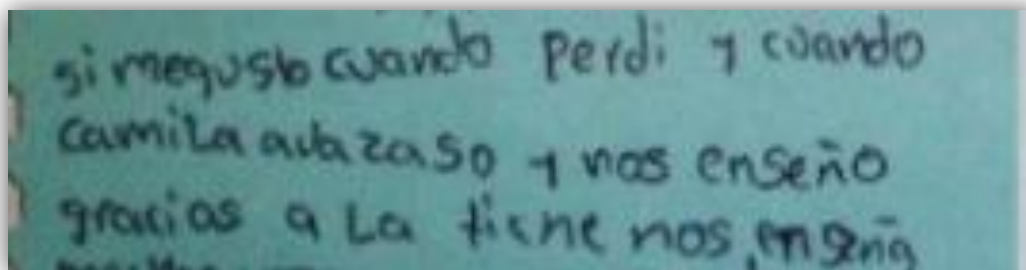 si megusto cuando perdi y cuando
camila y nos enseño
gracias a La tiene nos enseña